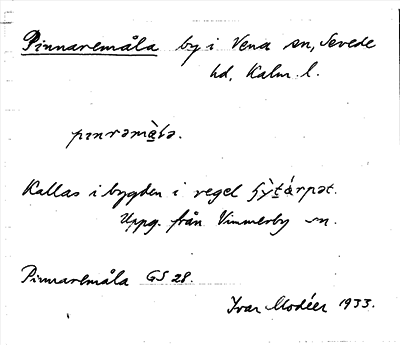 Pinnaremåla by i Vena sn, Sevede
hd, Kalm. l.
pɪnrəmåla.
Kallas i bygden i regel
Uppg. från Vimmerby sn.
Pinnaremåla GS 28.
Ivar Modéer 1933.